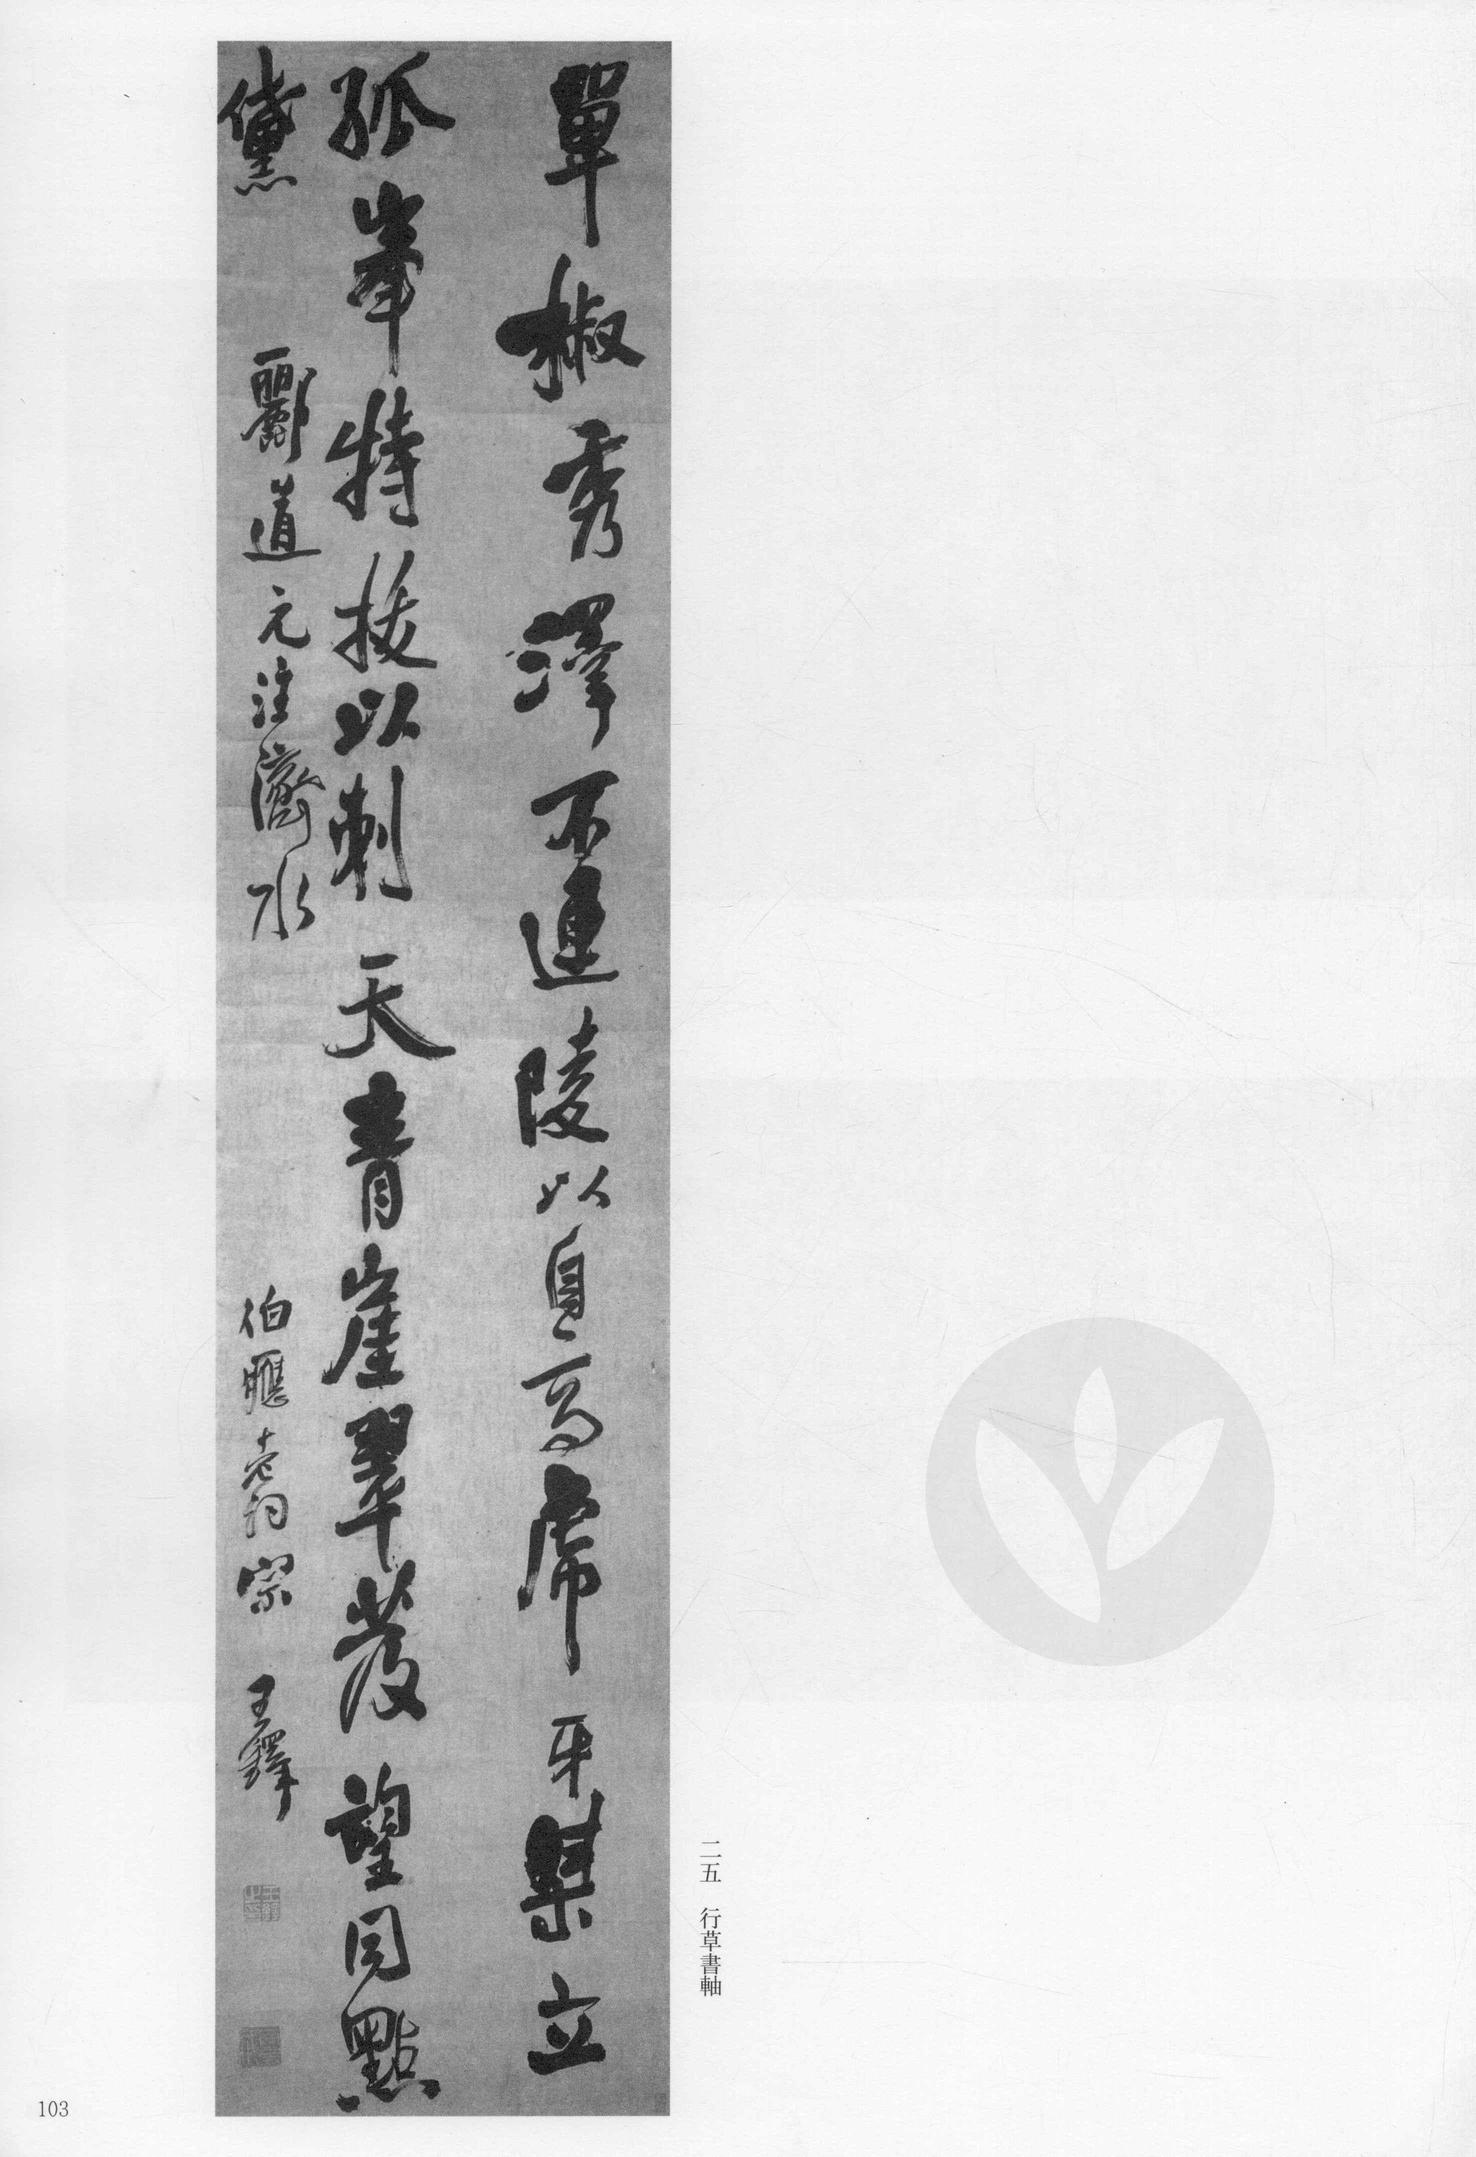 單椒秀澤不連陵以自高虎牙桀立
孤峯特拔以刺天青崖翠發望同點
黛 酈道元注濟水 伯應老詞宗 王鐸
二五 行草書軸
103